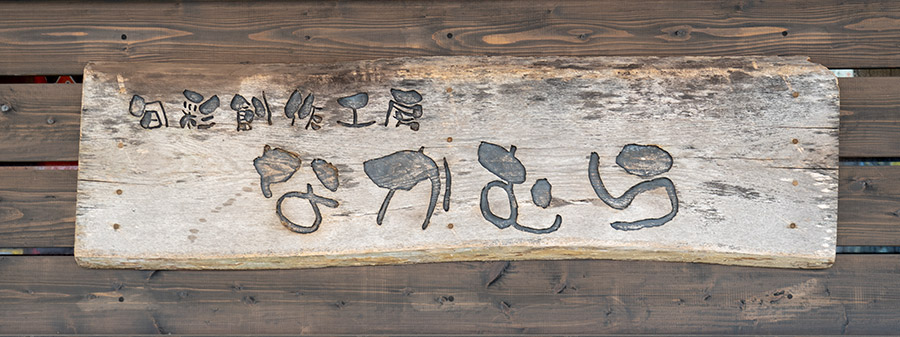 旬彩創作工房
なかむら